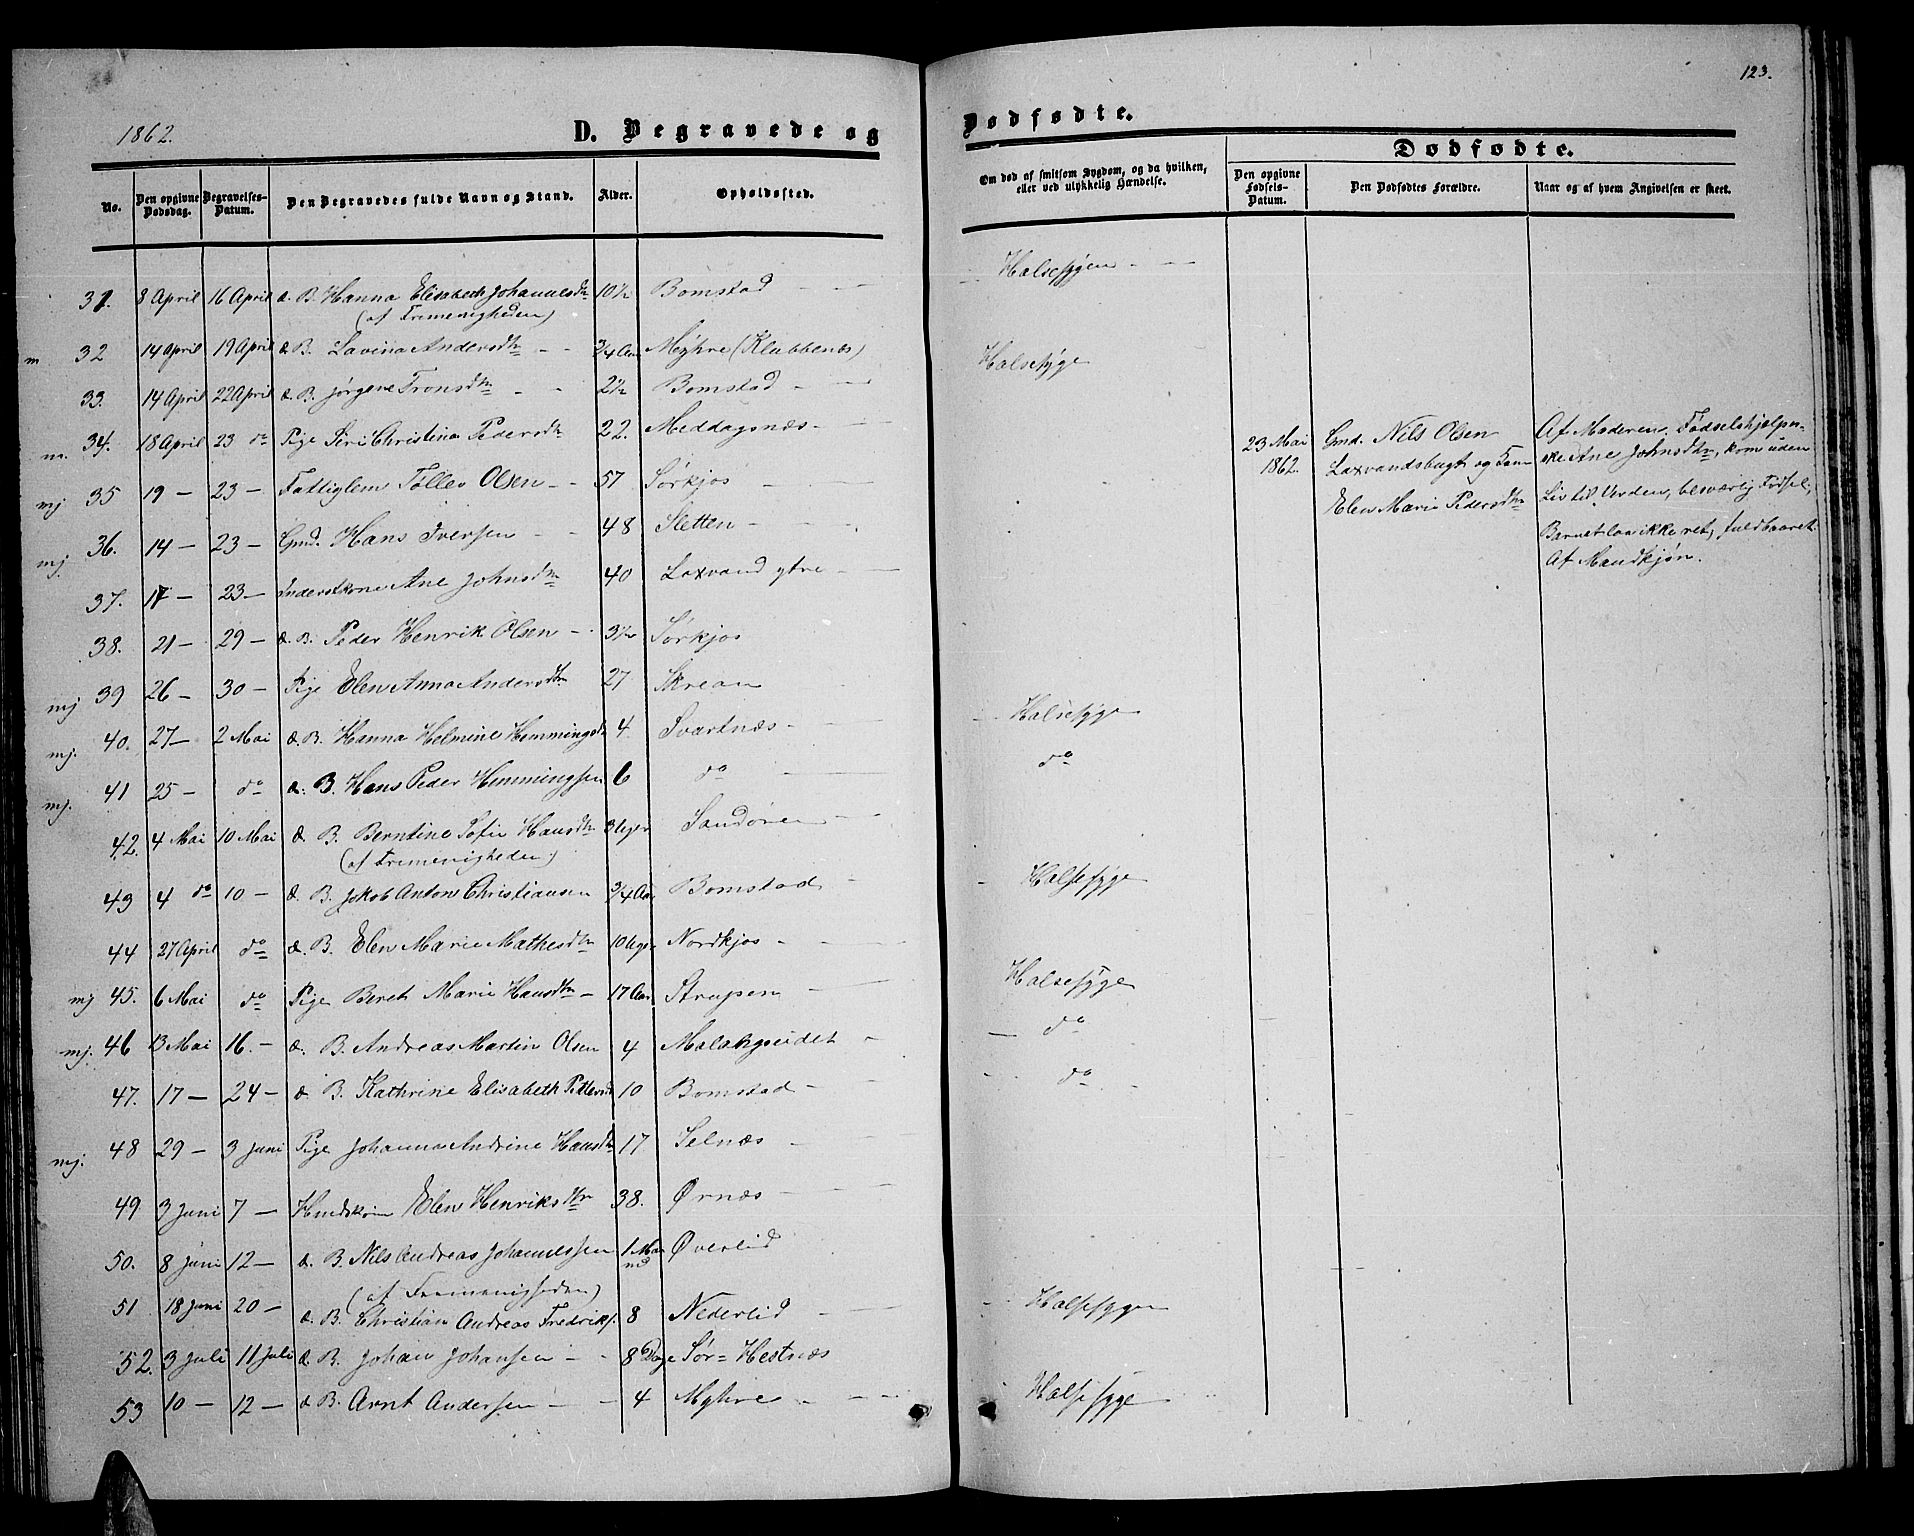 123.
1862.
D. Begravede og
Dødfødte.
Dødfødte.
No.
Den opgivne Dødsdag.
Begravelses-Datum.
Den Begravedes fulde Navn og Stand.
Alder.
Opholdssted.
Om død af smitsom Sygdom, og da hvilken, eller ved ulykkelig Hændelse.
Den opgivne Fødsels-Datum.
Den Dødfødtes Forældre.
Naar og af hvem Angivelsen er skeet.
31. 8 April 16 April d. B. Hanna Elisabeth Johannesdtr 10½ Bomstad Halsesygen
(af Frimenigheden)
m 32 14 April 19 April d. B. Lavina Andersdtr 3/4 Aar Myhre (Klubbenæs)
33. 14 April 22 April d. B. Jørgene Tronsdtr 2½ Bomstad Halsesyge
m. 34. 18 April 23 do Pige Siri Christina Pedersdtr 22. Meddagsnæs
mj 35 19 — 23 — Fattiglem Tollev Olsen 57 Sørkjos
mj. 36. 14 — 23 — Gmd. Hans Iversen 48 Sletten
37. 17 — 23 — Inderstkone Ane Johnsdtr 40 Laxvand ytre
38. 21 — 29 — d. B. Peder Henrik Olsen 3½ Sørkjos
mj 39 26 — 30 — Pige Elen Anna Andersdtr 27 Skrean
mj. 40. 27 — 2 Mai d. B. Hanna Helmine Hemmingsdtr 4 Svartnæs Halsesyge
mj. 41 25 — do d. B. Hans Peder Hemmingsen 6 do do
42. 4 Mai 10 Mai d. B. Berntine Sofie Hansdtr 3 Uger Sandøren
(af Frimenigheden)
43 4 do 10 — d. B. Jakob Anton Christiansen 3/4 Aar Bomstad Halsesyge
44 27 April do d. B. Elen Marie Mathesdtr 10 Uger Nordkjos
mj 45. 6 Mai do Pige Beret Marie Hansdtr 17 Aar Strupen Halsesyge
mj. 46 13 Mai 16. — d. B. Andreas Martin Olsen 4 Malangseidet do
47. 17 — 24 — d. B. Kathrine Elisabeth Pettersd 10 Bomstad do
mj. 48 29 — 3 Juni Pige Johanna Andrine Hansdtr 17 Selnæs
49 3 Juni 7 — Elen Henriksdtr 38. Ørnæs
50. 8 Juni 12 — d. B. Nils Andreas Johannessen 1 Maaned Øverlid
(af Frimenigheden)
51 18 Juni 20 — d. B. Christian Andreas Fredriks. 8 Nederlid Halsesygen
52. 3 Juli 11 Juli d. B. Johan Johansen 8 Dage Sør=Hestnæs
53 10 — 12 — d. B. Arnt Andersen 4 Myhre Halsesyge
23 Mai
1862.
Gmd. Nils Olsen
Laxvandsbugt og Kone
Elen Marie Pedersdtr
Af Moderen. Fødselshjælper-
ske Ane Johnsdtr, kom uden
Liv til Verden, besværlig Fødsel,
Barnet laa ikke ret, fuldbaaret
Af Mandkjøn.